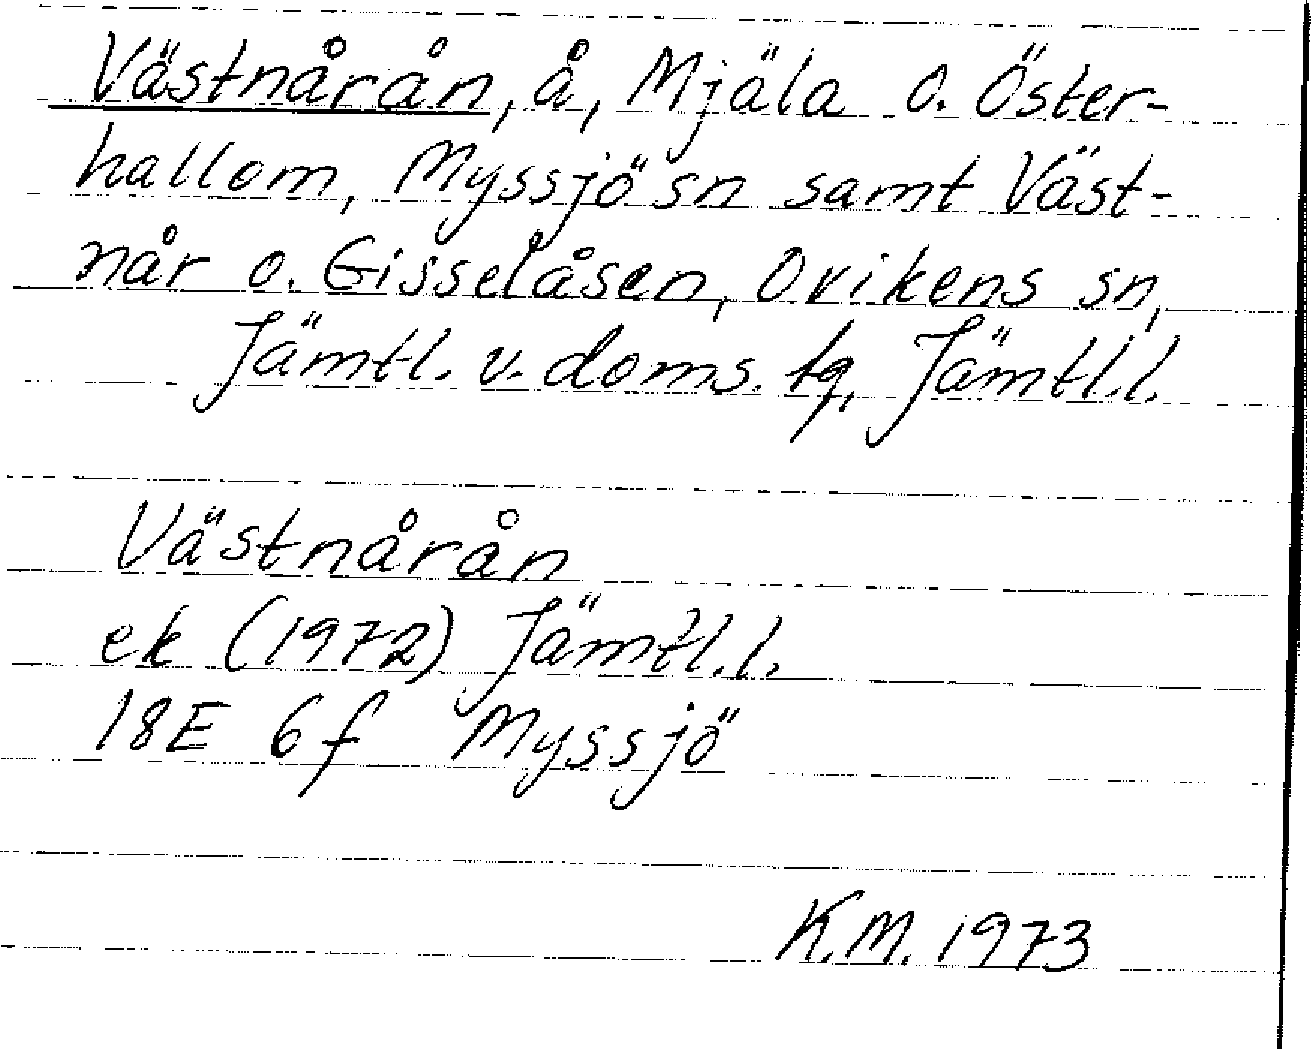 Västnårån, å, Mjäla o. Öster-
hallom, Myssjö sn samt Väst-
når o. Gisselåsen, Ovikens sn,
Jämtl. v. doms. tg, Jämtl.l.
Västnårån
ek (1972) Jämtl.l.
18E 6f Myssjö
K.M. 1973